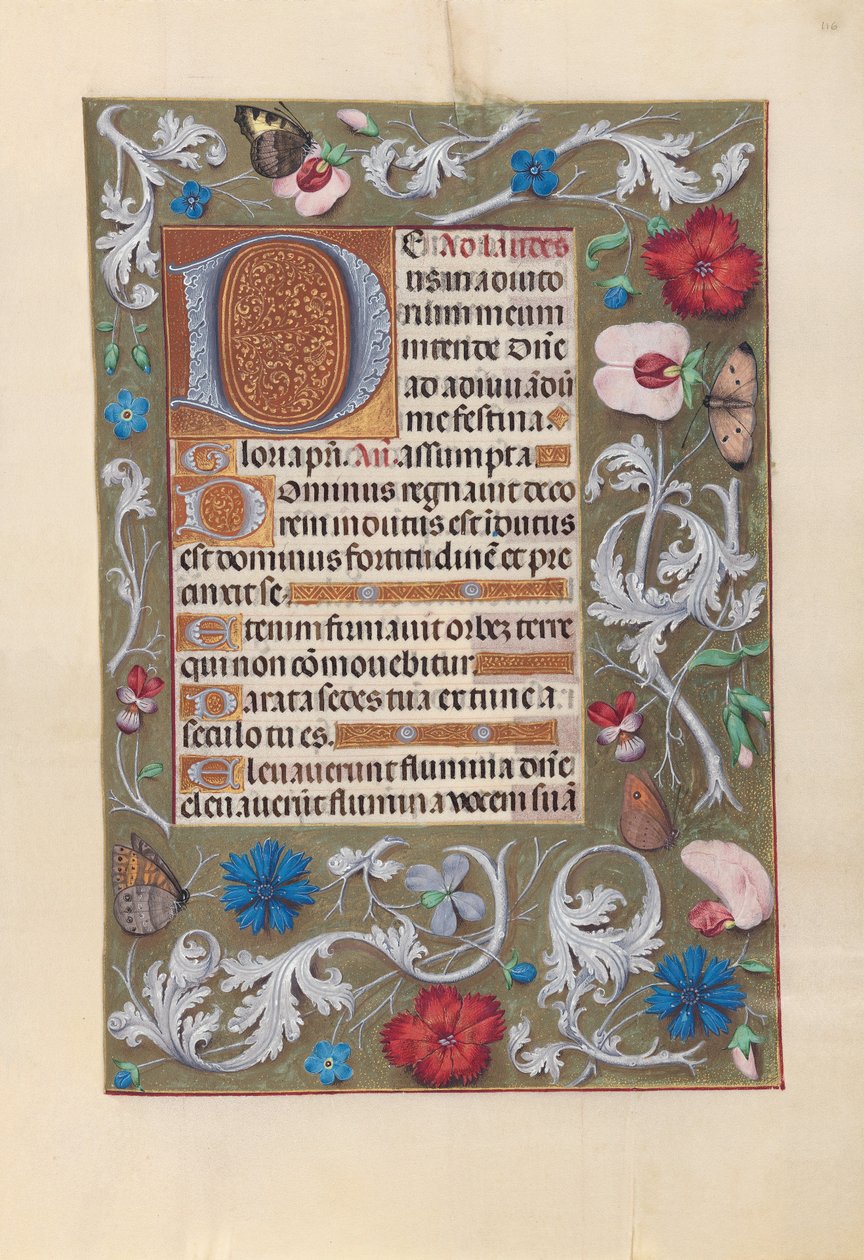 116
DE Ad laudes
us in adiuto
rium meum
intende Dn̄e
ad adiuuādū
me festina.
Gloria pr̄i. An̄. assumpta
Dominus regnauit deco
rem indutus est īdutus
est dominus fortitudinē et pre
cinxit se.
Etenim firmauit orbez terre
qui non cōmouebitur
Parata sedes tua ex tunc a
seculo tu es.
Eleuauerunt flumina dn̄e
eleuauerūt flumina vocem suā